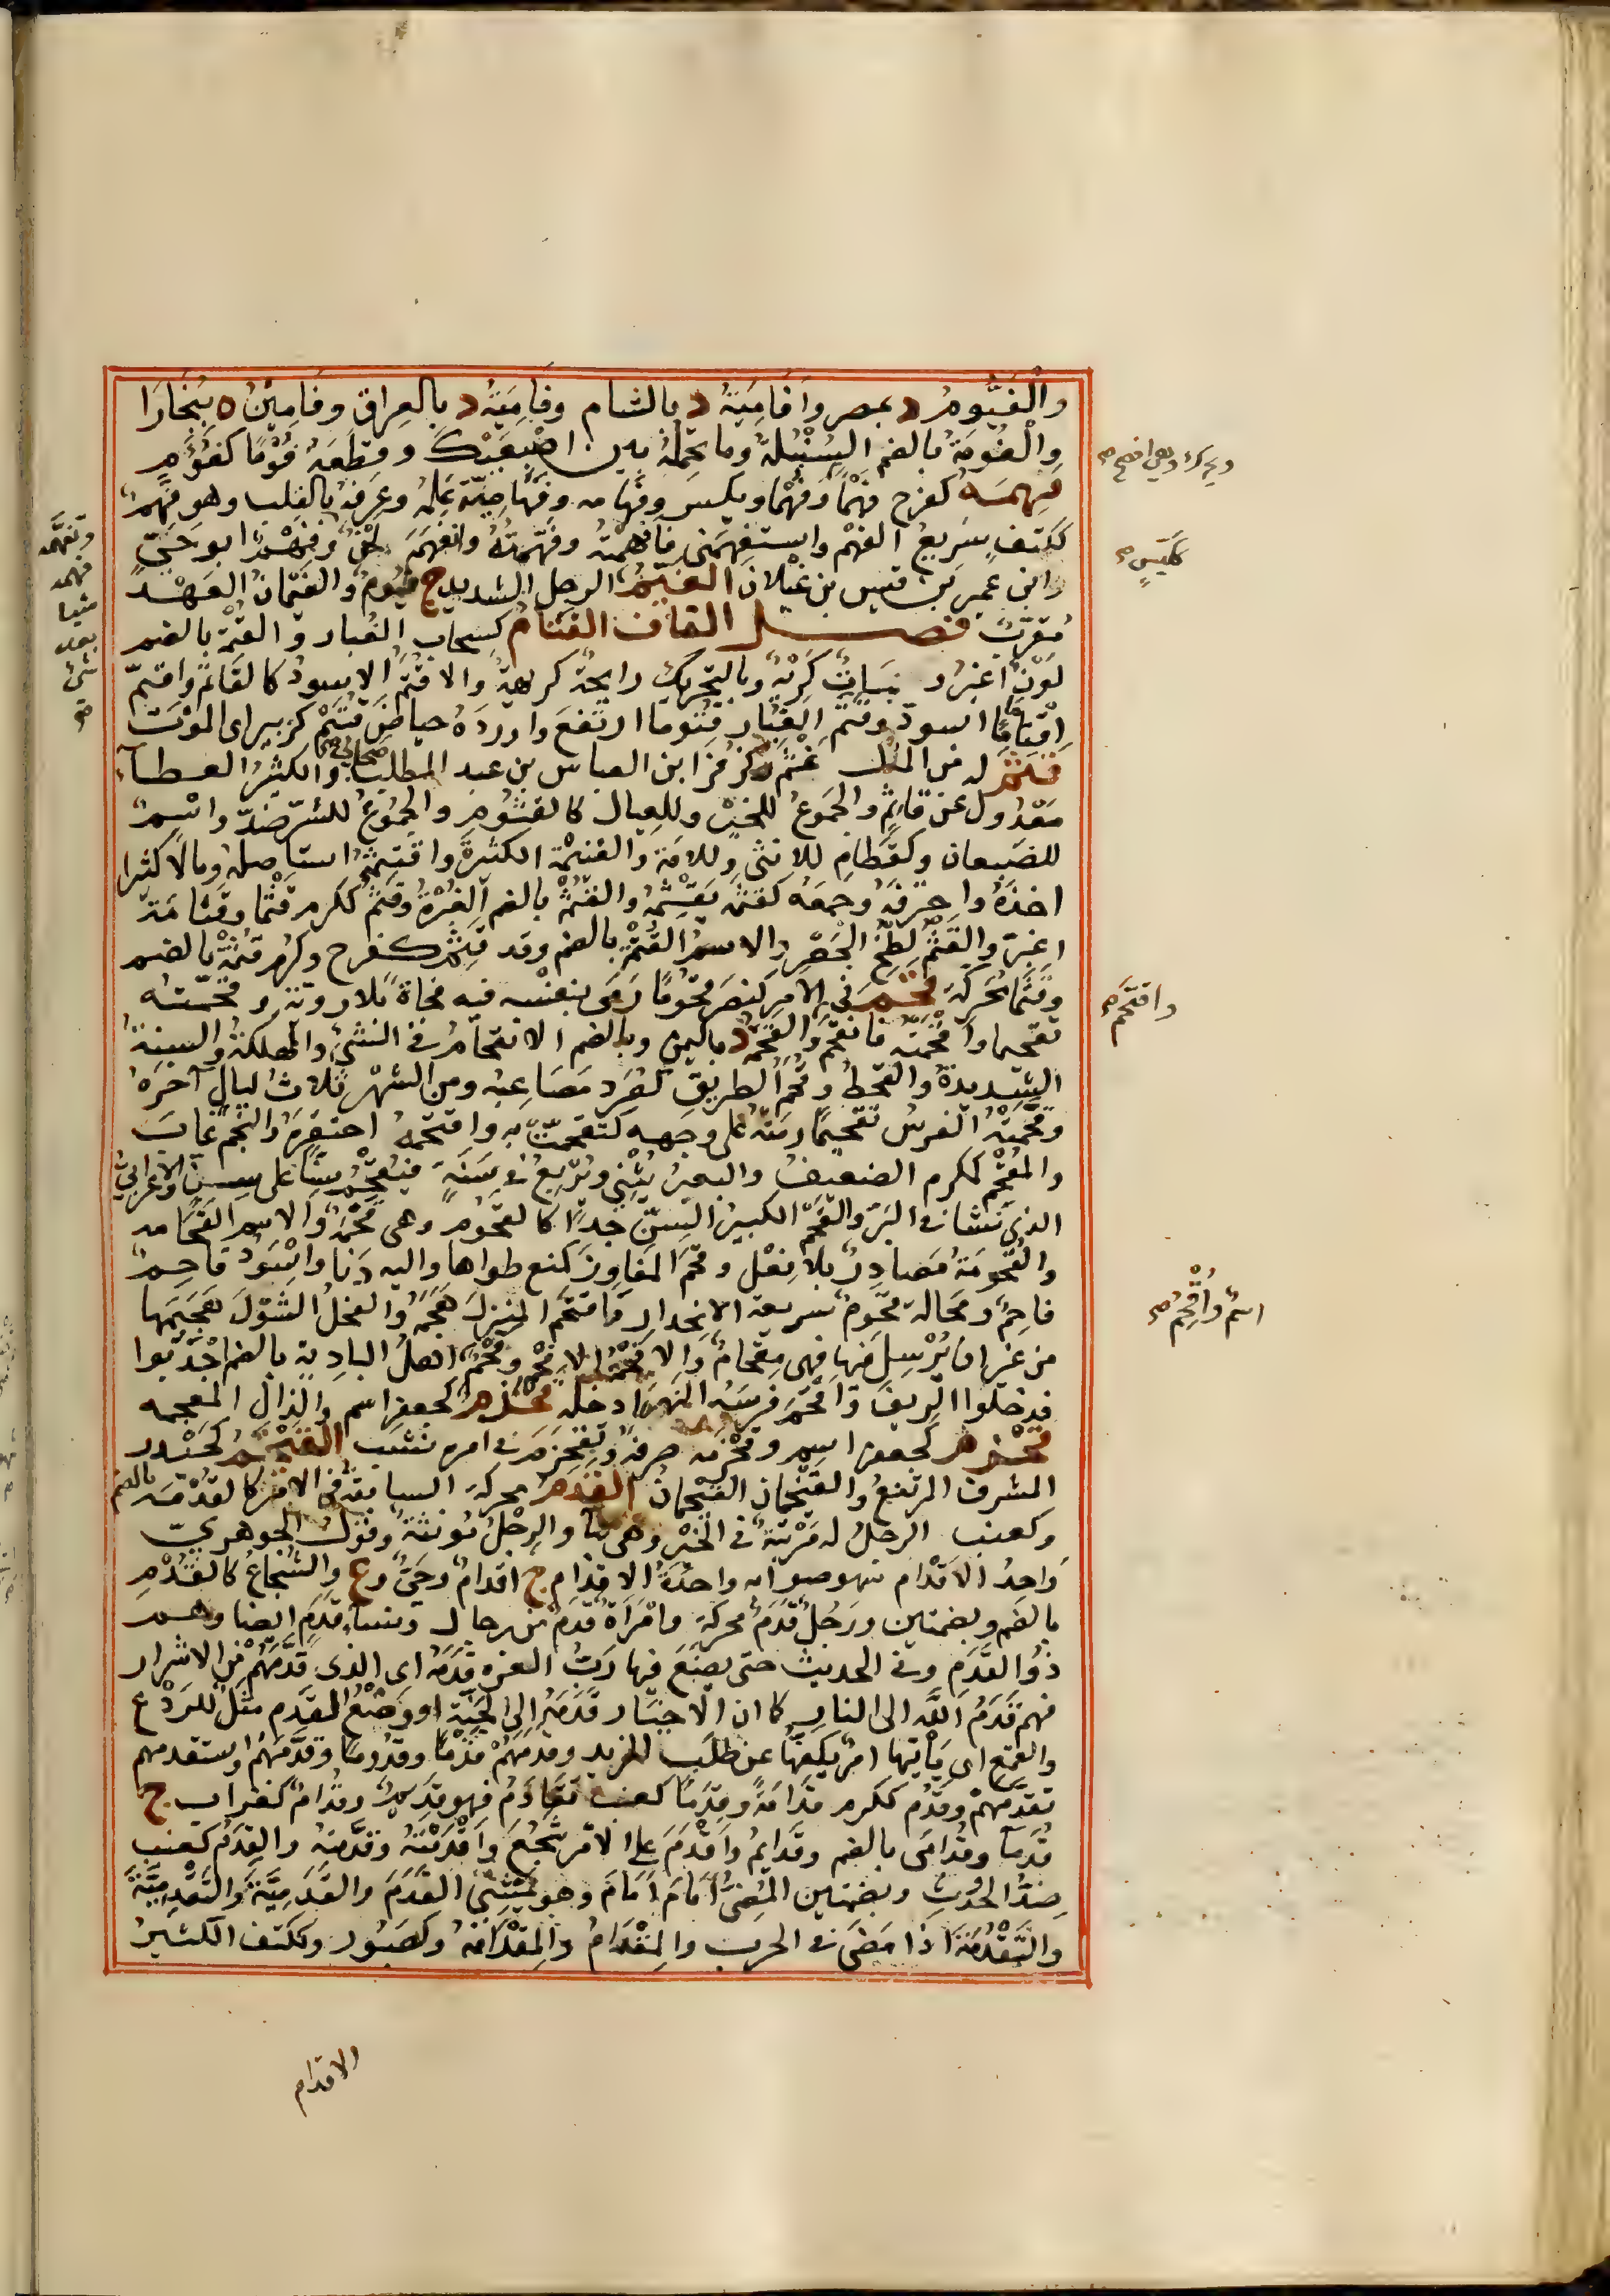 والْفَيُّومُ د بمصر وأَفَامِيَةُ د بالشام وفَامِيَةُ د بالعِراق وفَامِيْنُ ه ببُخَارَا
والْفُومَةُ بالضم السُنْبُلةُ وما تحمِلُهُ بين اصْبَعَيْكَ وقطَّعَهُ فُوَمًا كفُوَمٍ
فهمه كفرح فَهْمًا وفَهَمًا ويكسر وفَهَامه وفَهَامِيَةً عَلِمَهُ وعَرَفَهُ بالقلب وهو فَهِمٌ
ككتف سَريعُ الفَهْم واستَفْهَمَنِى فافهمْتُه وفَهَّمْتُهُ وانْفَهَمَ لَحْنٌ وفَهْمٌ ابو حَيٍّ
وابنُ عمرِو بن قيس بن عَيْلانَ الفَيْمُ الرجل الشديد ج فُيُومٌ والفَيْمَانُ العَهْد
مُعَرَّبٌ فصل القاف القَتَامُ كسحاب الغُبار والقُتْمَة بالضم
لَوْنٌ اغبرُ و نَبَاتٌ كَرِيْهٌ وبالتحريك رايحةٌ كريهةٌ والاقْتَمُ الاسودُ كالقَاتم واقتمَّ
اقْتِمَامًا اسودّ وقَتَمَ الغُبَار قُتُوما ارتفعَ واوردَهُ حياضَ قُتَيْمٍ كزبير اى الموْتَ
قثم له من المال غَثَمَ وكزُفَرَ ابن العباس بن عبد المطلب صحابى والكثيرُ العطآء
مَعْدُول عن قَاثِمٍ والجَمُوعُ للخَيْر وللعيال كالقَثُومِ والجَمُوعُ للشرّ ضدّ واسْمٌ
للضبعان وكقَطَامِ للانثى وللامَةِ والغنيمة الكثيرة واقتثَمَهُ استاصلهُ ومالا كثيرا
اخذَهُ واجترَفَهُ وجَمَعَه كقثمه يَقْثِمُه والقُثْمَةُ بالضم الغُبْرَةُ وقَثُمَ ككرم قَثْمًا وقَثَامَةً
اغبرّ والقَثْمُ لَطْخُ الجَعْرِ والاسمُ القُثْمَةُ بالضم وقد قثم كفرح وكرم قُثْمَةً بالضم
وقَثَمًا مُحَرَّكَةً قحم فى الامر كنصر قُحُومًا رَمَى بنفْسه فيه فجاةً بلا رويّة وقحّمتُه
تقحيما واقْحَمْتُه فانقحمَ والقَحْمَةُ د باليمن وبالضم الانقحامُ فى الشئ والمهلكةُ والسنةُ
الشديدةُ والقحطُ وقُحَمُ الطريق كصُرَد مَصَاعِبُه ومن الشهْر ثلاثُ ليالٍ آخرَهُ
وقَحَّمَتْه الفرسُ تقحيمًا رمَتْه على وجهه كتقحمتْ به واقتحمَهُ احتقرهُ والنجمُ غابَ
والمُقْحَم كمكرم الضعيفُ والبعيرُ يُثْنِي ويُرْبِعُ فى سَنَةٍ فيُقْحِمُ سِنًّا على سِنٍّ والاعرابىّ
الذى نَشأ فى البَرّ والقَحْمُ الكبيرُ السنّ جدًّا كالقَحُوم وهى قَحْمَةٌ والاسم القَحَامه
والقُحُومَة مَصَادِرُ بلا فِعْل وقَحَمَ المَفَاوِزَ كمنع طواها واليه دَنَا واسْوَدُ قَاحِمٌ
فَاحِمٌ ومَحالة قَحُومٌ سريعة الانحدار واقتحَمَ المنزلَ هَجَمَهُ والفحلُ الشَوْلَ هَجَمَهَا
من غير ان يُرْسِلَ فيها فهى مِقْحامٌ وأُقْحِمَ اهلُ البادية بالضم أجْدَبُوا
فدخلوا الرِيفَ واقْحَمَ فرسَهُ النهرَ ادخله قحدم كجعفر اسم والذال المعجمه
قحزم كجعفر اسم وقَحْزَمَه صرفَهُ وتَقَحْزَمَ فى امره تشبّ القيخم كحَيْدر
المشرف المرتفعُ والقَيْخَمَان الفَيْخَمَانُ القدم محركة السابقةُ فى الامر كالقُدْمَه بالضم
وكعنب الرجلُ له مَرْتبةٌ فى الخيْر وهى بها والرِجْلُ مُونثةٌ وقولُ الجوهريّ
واحدُ الاقدام سهو صوابه واحدةُ الاقدام ج اقدامٌ وحَيٌّ وع والشُجَاعُ كالقُدْمِ
بالضم وبضمتين ورَجُلٌ قَدَمٌ محركة وامْرَاةٌ قدمٌ من رجال ونساءٍ قدَمٍ ايضا وهم
ذَوُوا القَدَمِ وفى الحديث حتى يضَعَ فيها رَبُّ العزة قَدَمَه اى الذى قَدَّمَهُمْ مِن الاشرار
فهم قَدَمُ اللّه الى النار كما ان الاخيار قَدَمُهُ الى الجَنّة او وَضْعُ القَدَم مثلٌ للرَدْع
والقمع اى يَأْتيها امرٌ يكفها عن طلَب المزيد وقَدَمَهُمْ قَدْمًا وقُدُومًا وقَدَّمَهُمْ واستقدمهم
تقدّمَهُمْ وقَدُم ككرم قَدَامَةً وقِدَمًا كعنب تَقَادَمَ فهو قَدِيمٌ وقُدَامٌ كغراب ج
قُدَمَا وقُدَامَى بالضم وقَدَايمُ واقْدَمَ على الامْرِ شَجُعَ واقْدَمْتُهُ وقَدَّمْتُهُ والقِدَمُ كعنب
ضدُّ الحُدُوثِ وبضمتين المُضِىُّ أمَامَ أمَامَ وهو يَمْشِى القُدُمَ والقَدَمِيَّةَ والتَقْدُمِيَّةَ
والتَّقْدُمَةَ اذا مَضَى فى الحرب والمِقْدَامُ والمِقْدَامَةُ وكصَبُور وككتف الكثيرُ
وافتحَمَ
اسمٌ وأُقْحِمَ
وتفهَّمه
فهمه
شيا
بعد
شئ
الاقدام